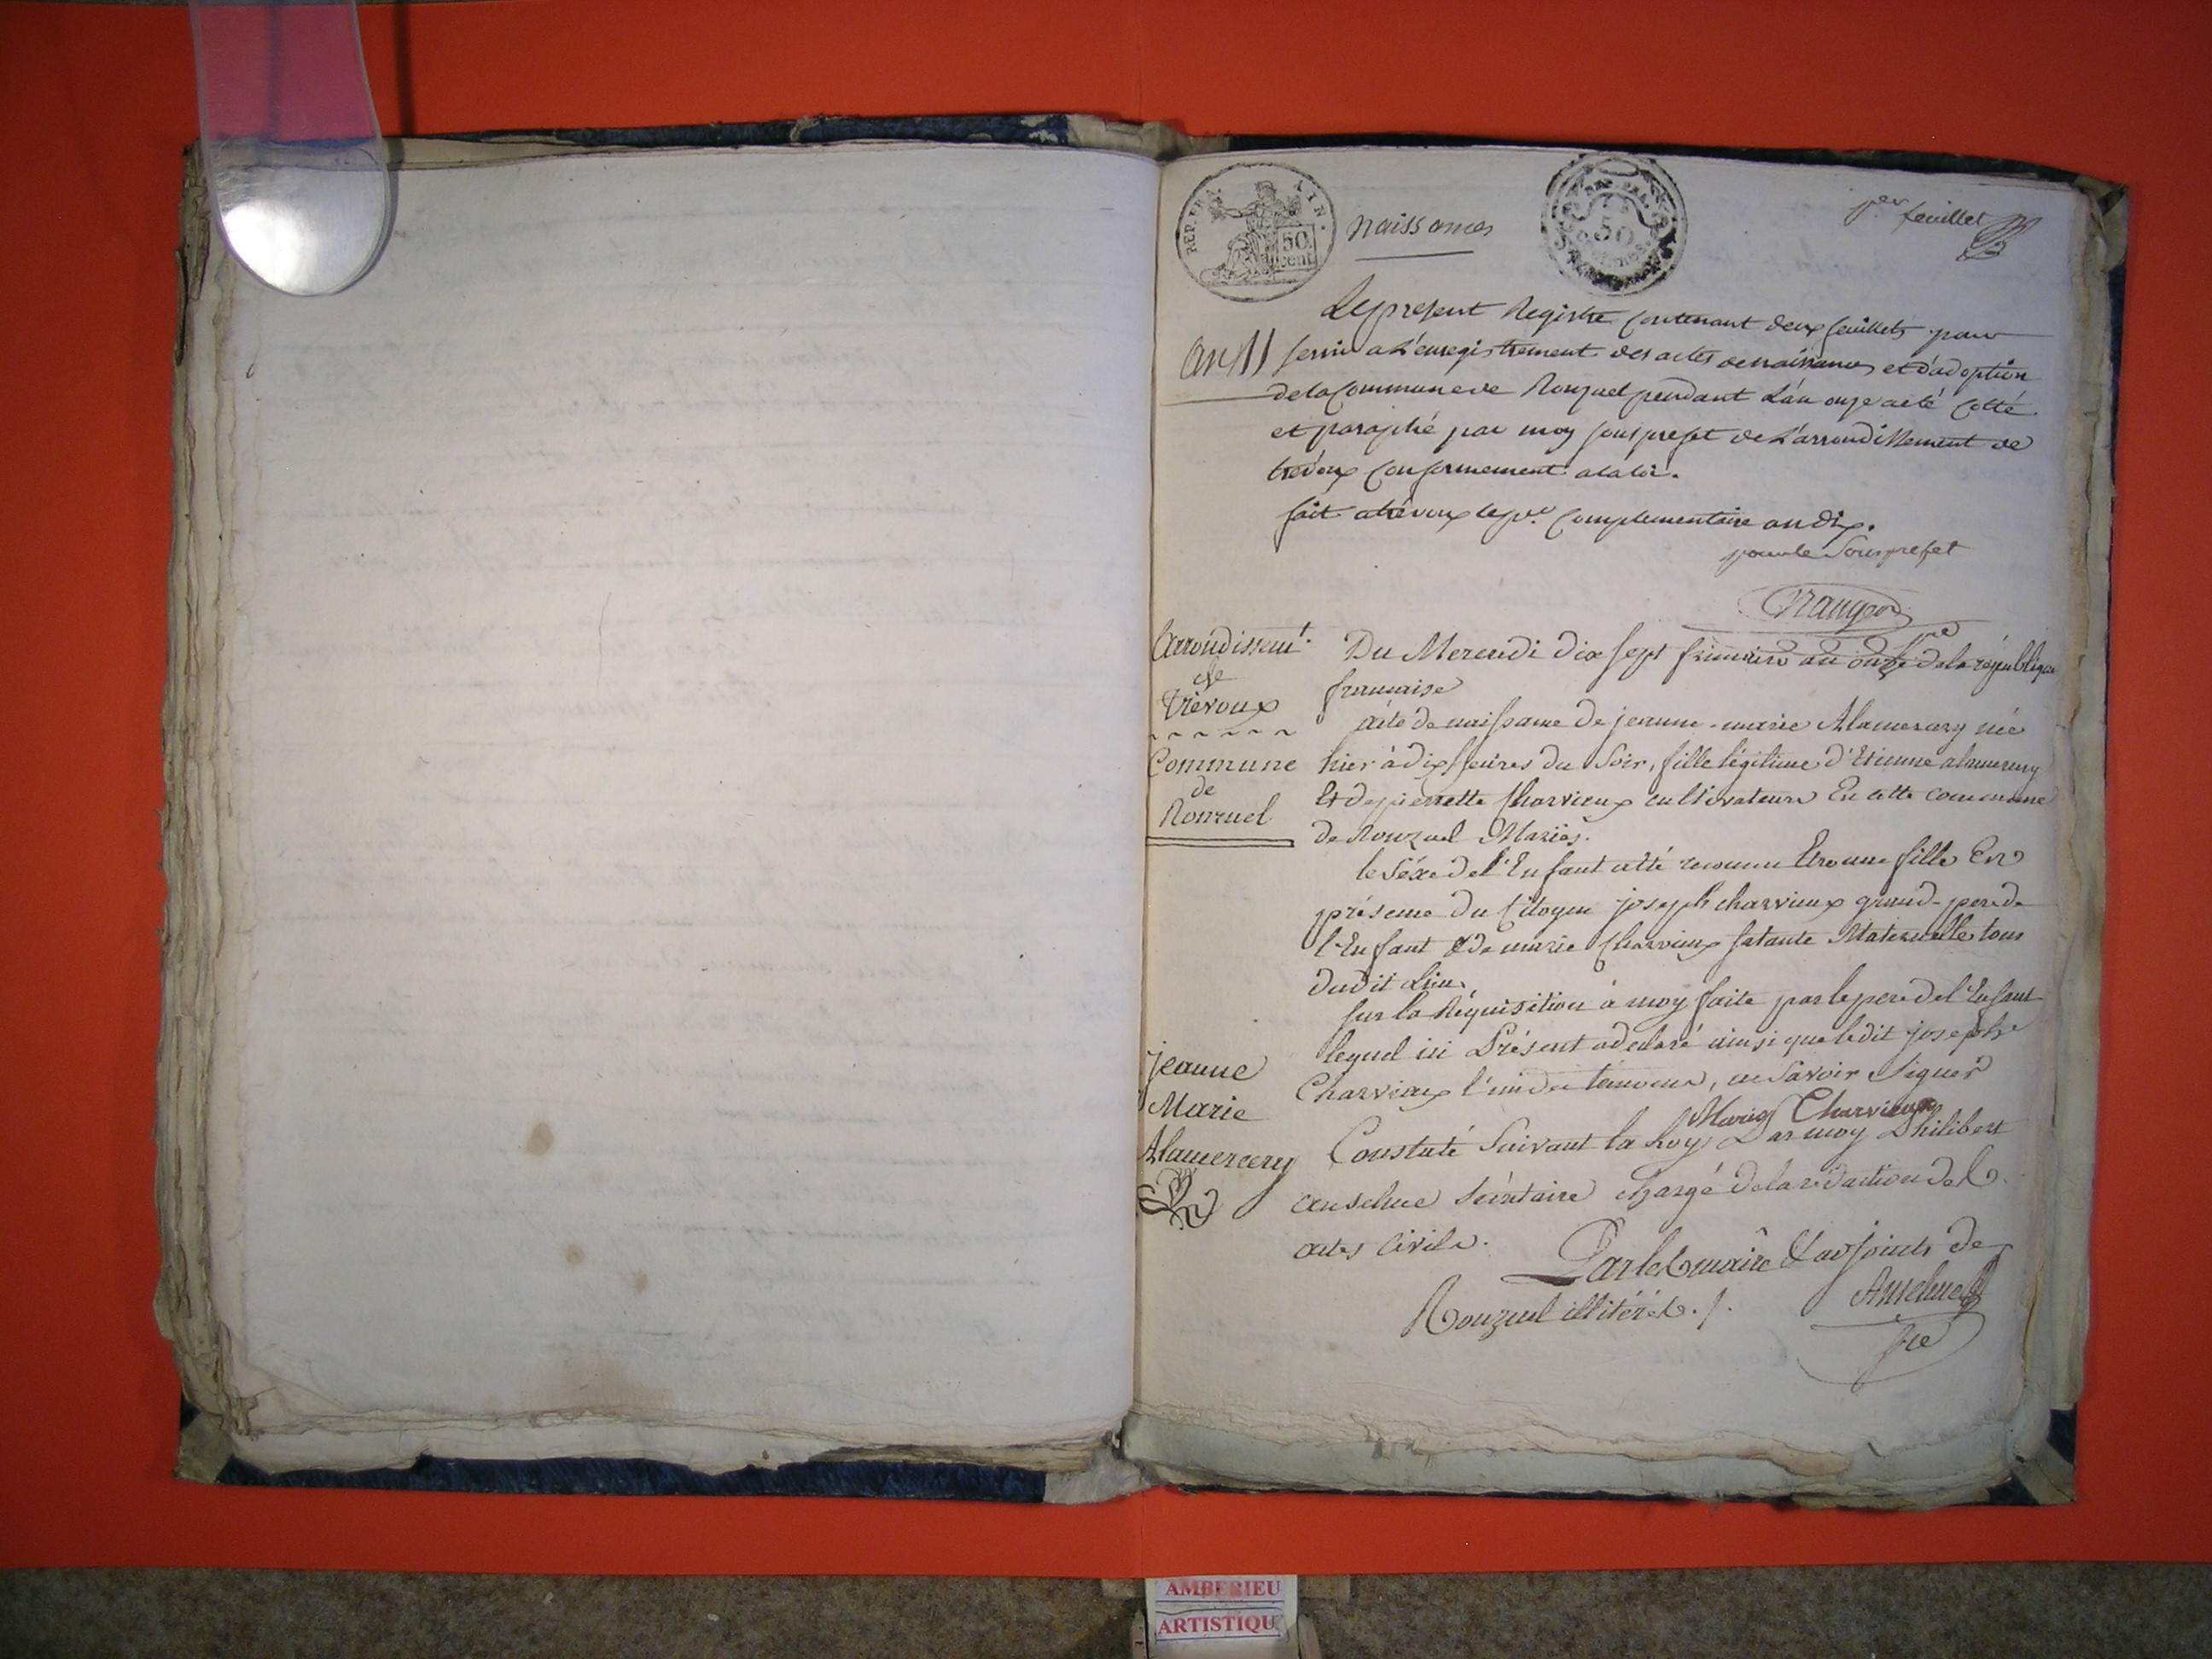 REP. FRA
50
cent
naissances
REP. FRA.
50
1.er feuillet
Le present Registre contenant deux feuillets pour
An 11
servir a L'enregistrement des actes de naissances et d'adoption
de la Commune de Ronzuel pendant L'an onze a eté Cotté
et paraphé par moy sous prefet de L'arrondissement de
trevoux Conformement a la loi.
fait a trévoux le p.er Complementaire an dix.
pour le Sous prefet
Arrondissem.t
de
Trévoux
Commune
de
Ronzuel
Du Mercredi dix sept frimaire an onze de la république
française
acte de naissance de jeanne-marie Alamercery née
hier à dix heures du Soir, fille légitime d'Etienne alamercery
Et de pierrette Charvieux cultivateurs En cette commune
de Ronzuel Mariés.
le Séxe de l'Enfant a été reconnu Etre une fille En
présence du Citoyen joseph charvieux grand-pere de
l'Enfant & de marie Charvieux sa tante Maternelle tous
dudit Lieu,
sur la Réquisition à moy faite par le pere de l'Enfant
lequel ici Présent a déclaré ainsi que ledit joseph
Charvieux l'un des temoins, ne Savoir Signer
Marie Charvieux
jeanne
Marie
Alamercery
Constaté Suivant la Loy Par moy Philibert
anselme Secrétaire chargé de la rédaction des
actes Civils.
Par les maire & adjoints de
Ronzuel illitérés.
Anselme
Sre
AMBERIEU
ARTISTIQU